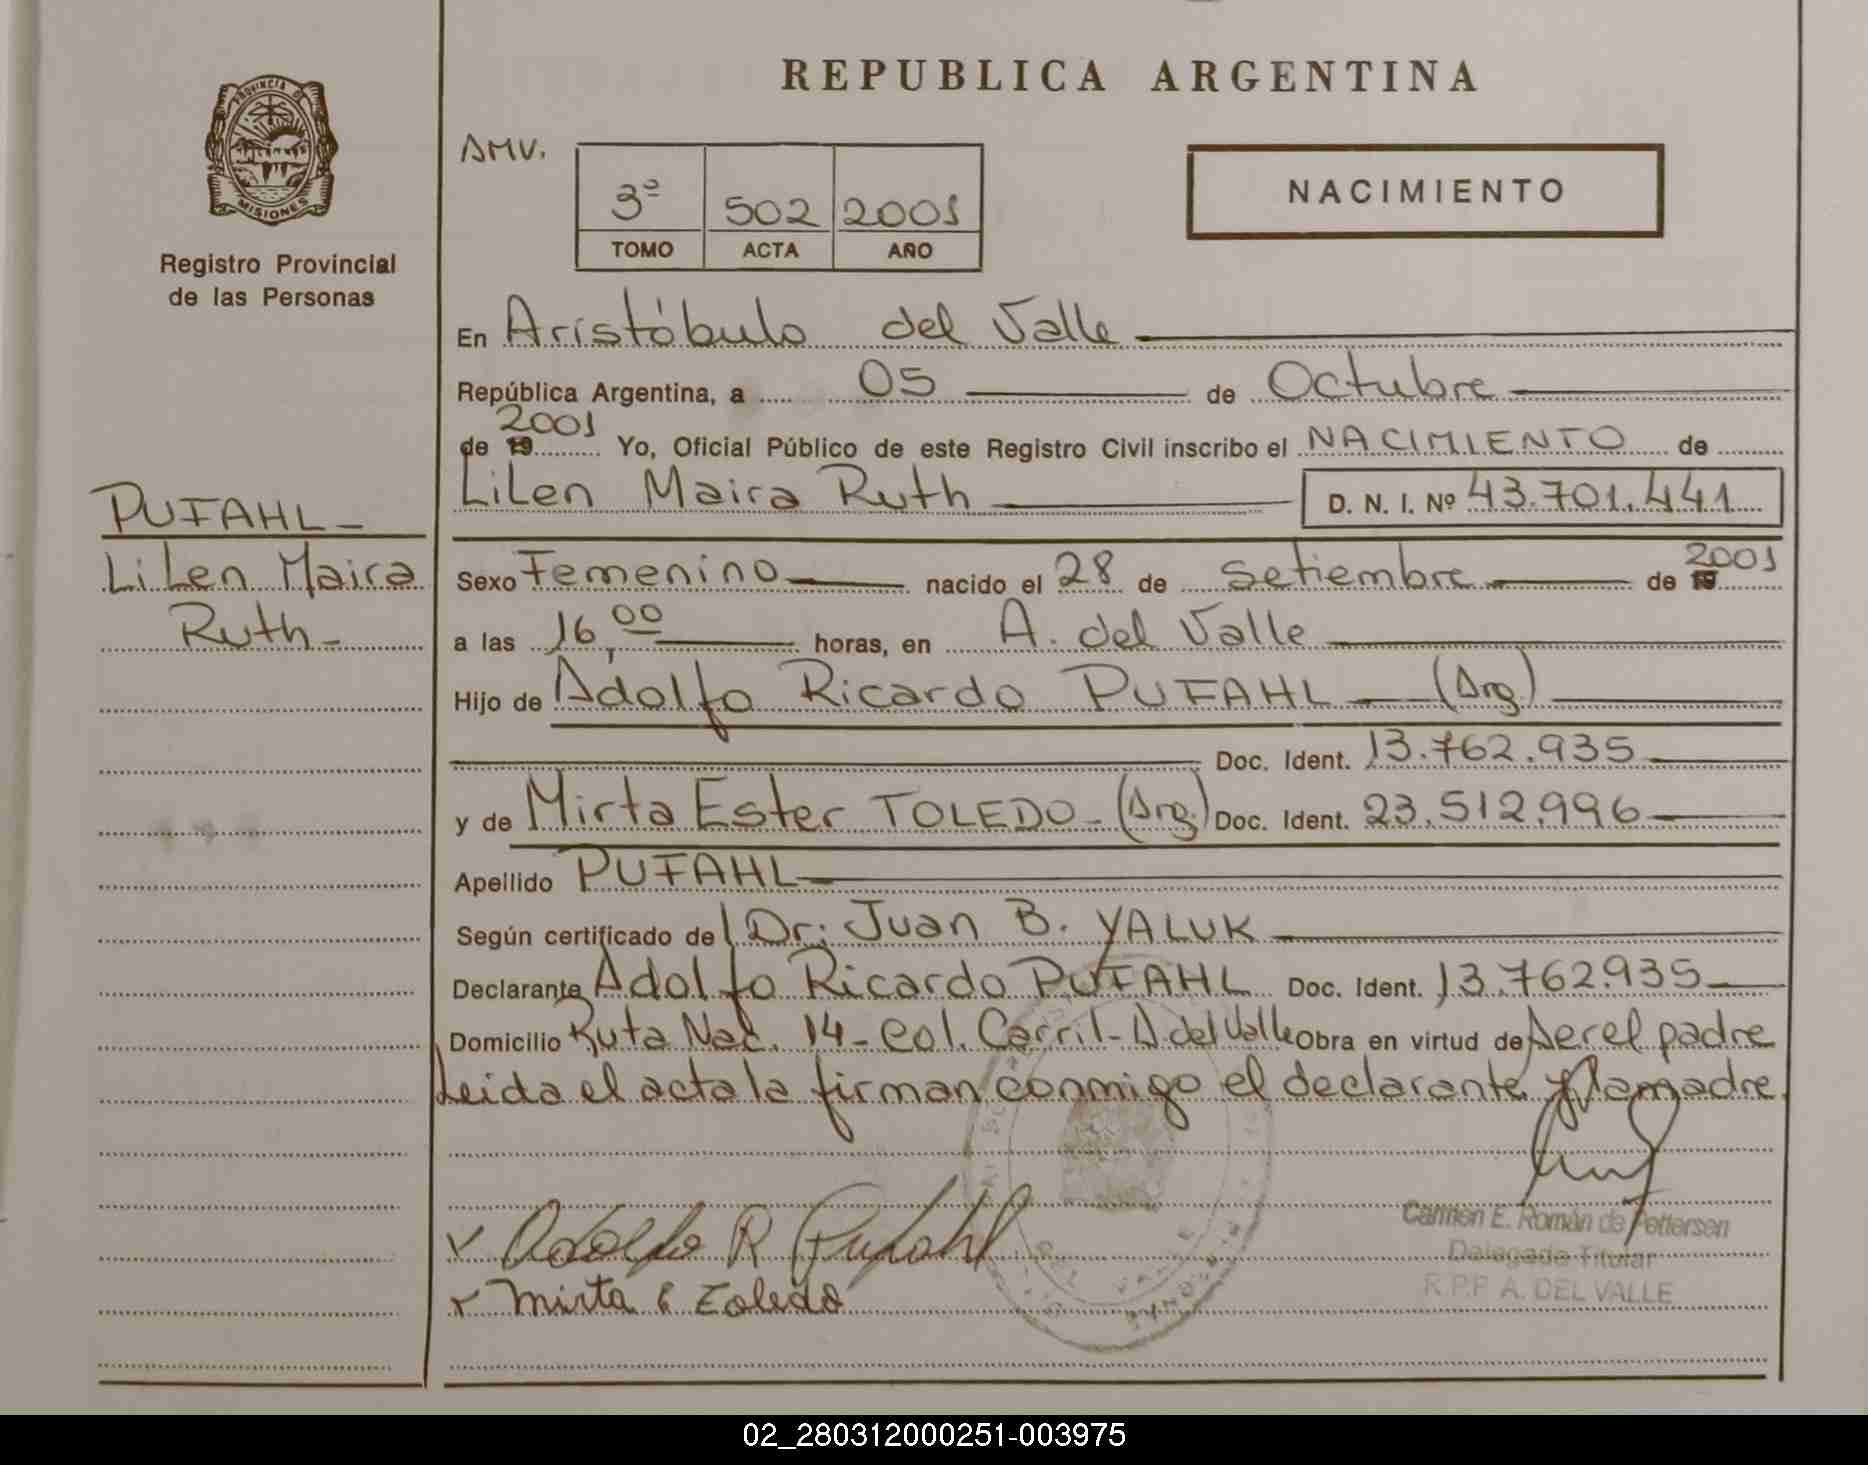 REPUBLICA ARGENTINA
PROVINCIA DE
MISIONES
Registro Provincial
de las Personas
AMV.
3º 502 2001
TOMO ACTA AÑO
NACIMIENTO
En Aristóbulo del Valle
República Argentina, a 05 de Octubre
de 19 2001 Yo, Oficial Público de este Registro Civil inscribo el NACIMIENTO de
Lilen Maira Ruth D. N. I. Nº 43.701.441
PUFAHL
Lilen Maira
Ruth
Sexo Femenino nacido el 28 de Setiembre de 19 2001
a las 16,00 horas, en A. del Valle
Hijo de Adolfo Ricardo PUFAHL (Arg.)
Doc. Ident. 13.762.935
y de Mirta Ester TOLEDO - (Arg.) Doc. Ident. 23.512.996
Apellido PUFAHL
Según certificado de Dr: Juan B. YALUK
Declarante Adolfo Ricardo PUFAHL Doc. Ident. 13.762.935
Domicilio Ruta Nac. 14 - Col. Carril - A. del Valle Obra en virtud de Ser el padre
Leida el acta la firman conmigo el declarante y la madre.
Adolfo R Pufahl
Mirta E Toledo
Carmen E. Román de Pettersen
Delegada Titular
R.P.P. A. DEL VALLE
02_280312000251-003975